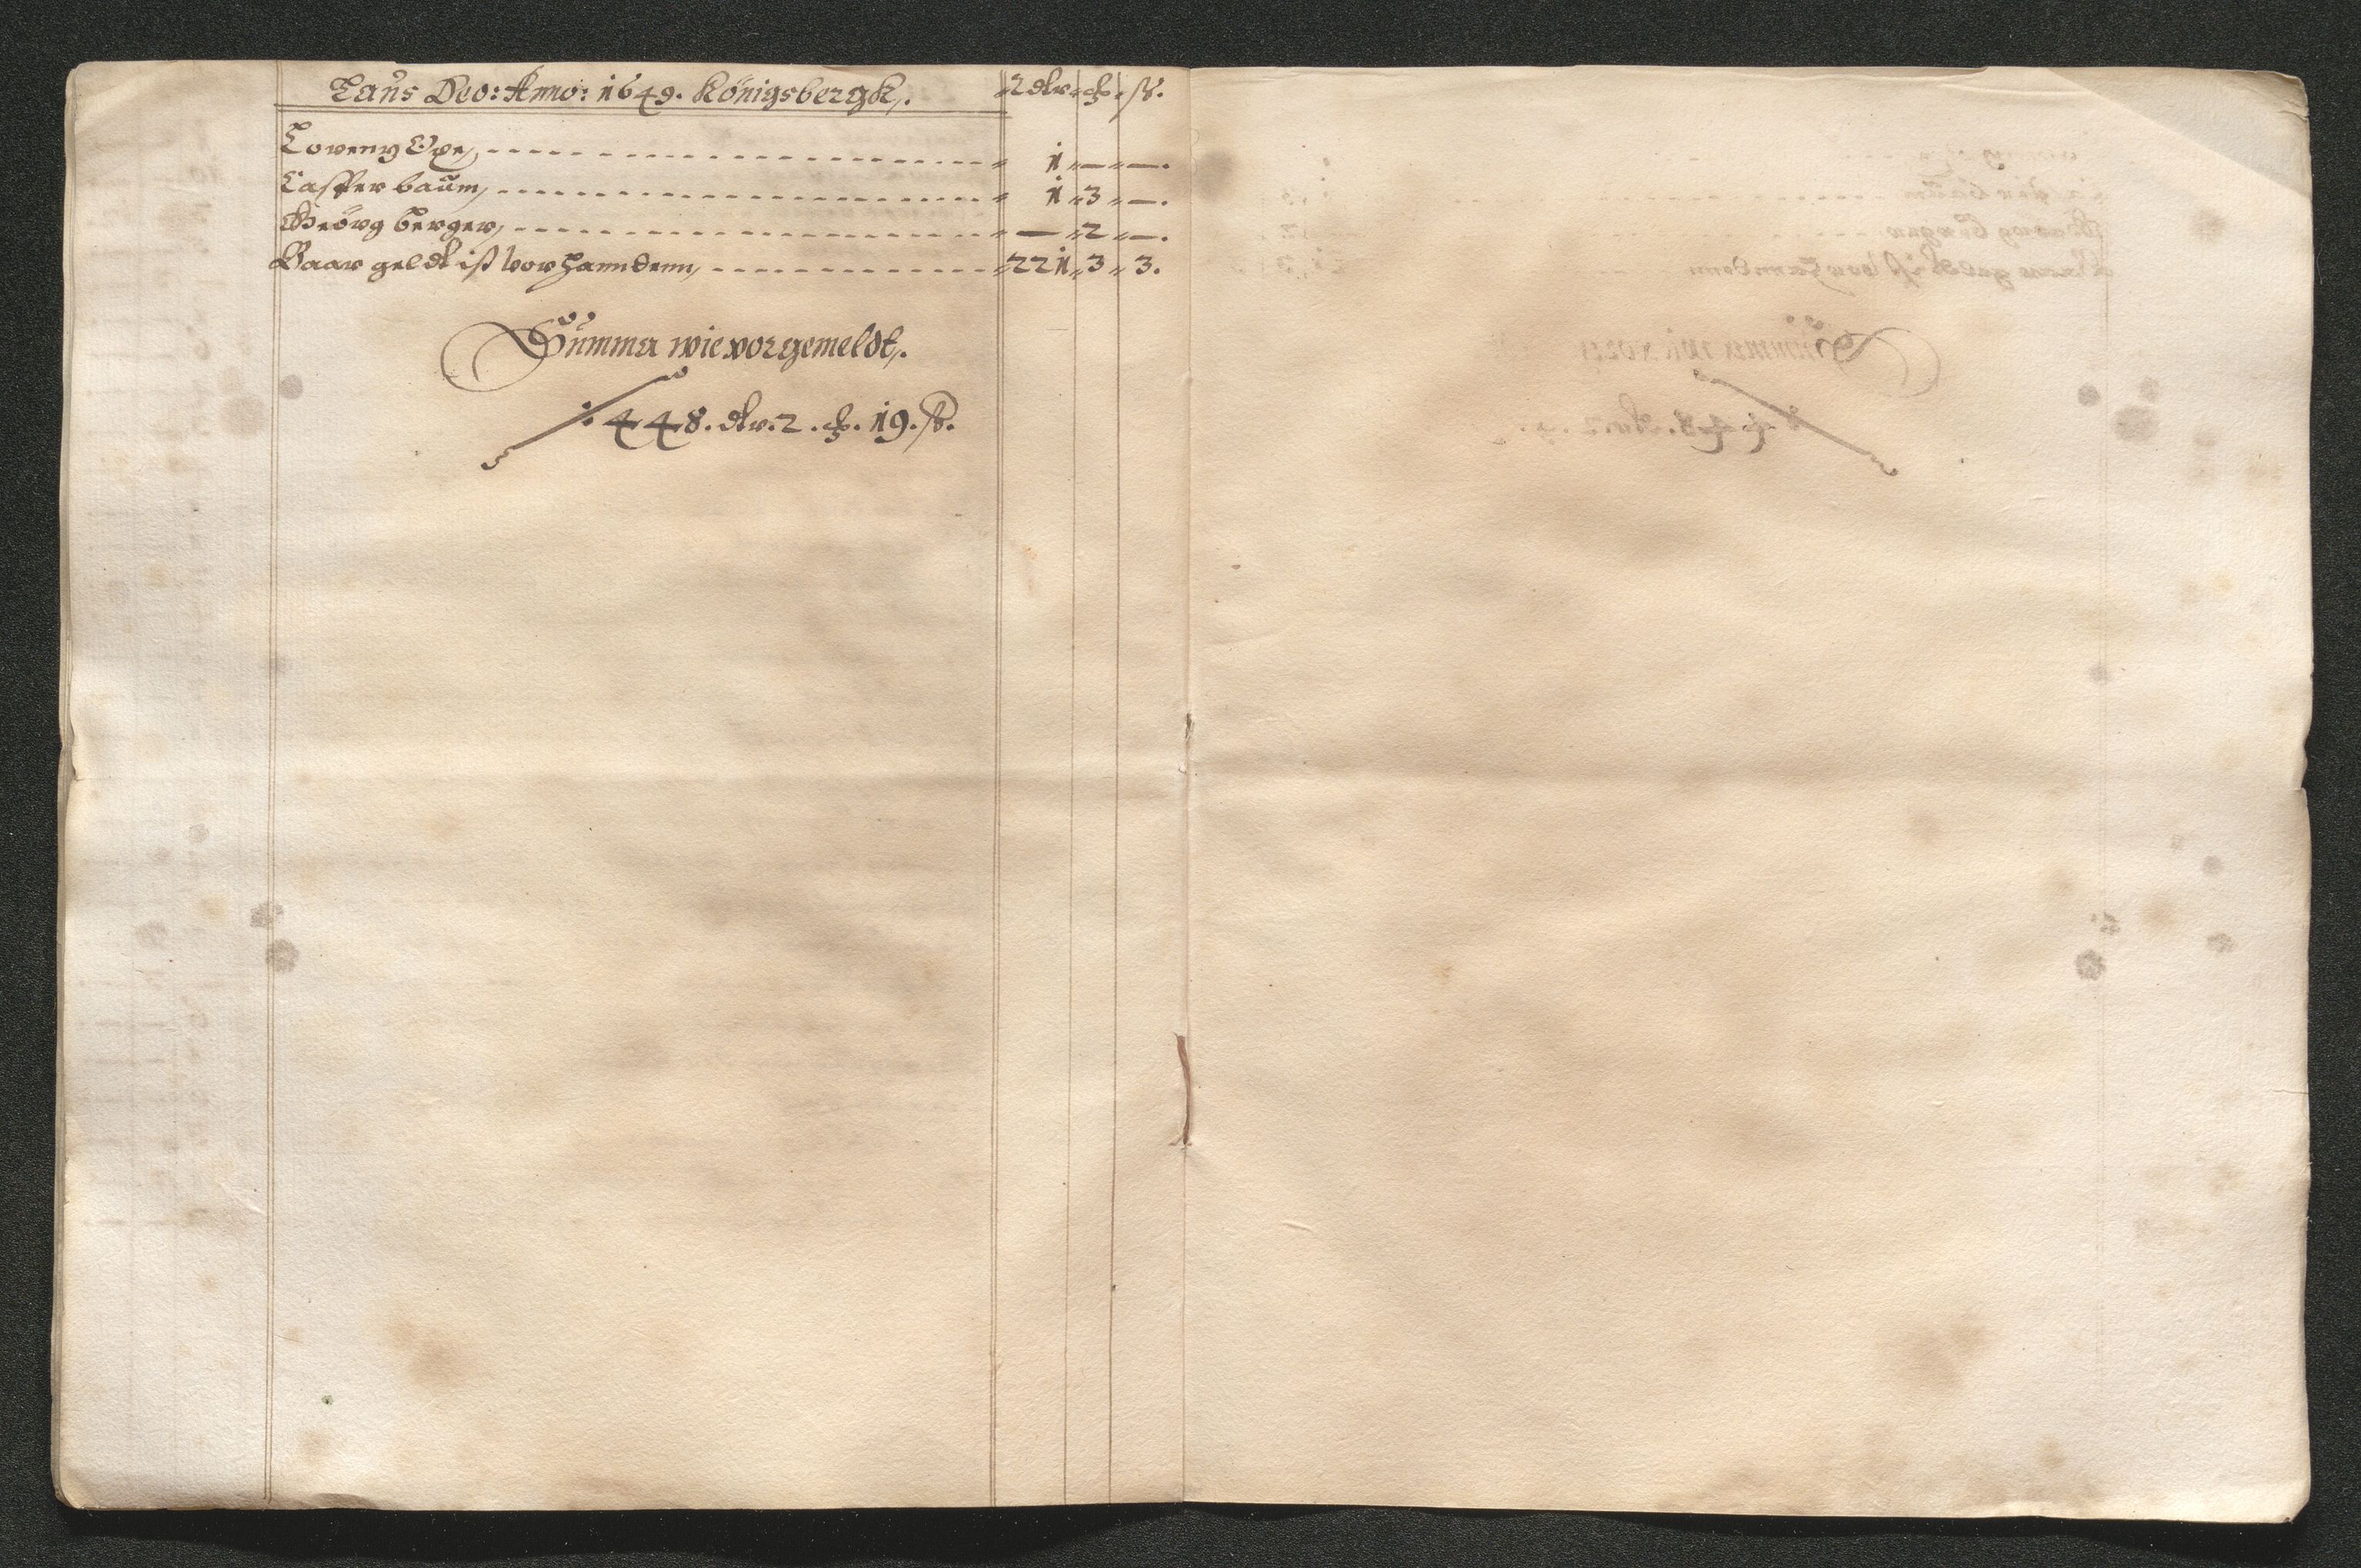 Laus Deo: Anno: 1649. Königsbergk. Rdlr. ß.
Lorentz Ope, 1 — —.
Casper baum, 1 3 —.
Geörg berger, — 2 —.
Baar geldt ist vorhanndenn, 221 3 3.
Summa wie vorgemeldt.
448. dlr. 2. 19. ß.